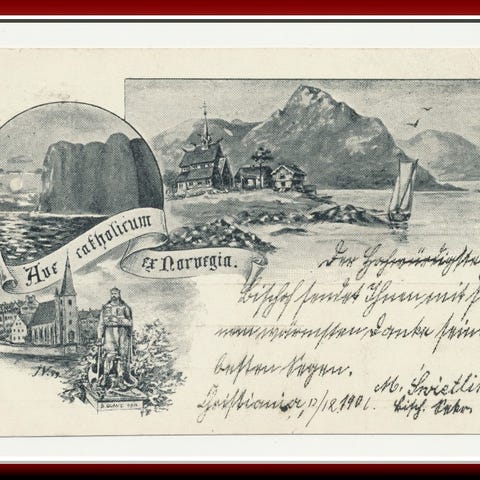 Ave catholicum
ex Norvegia.
Der Hochwürdigste
Bischof sendet Ihnen mit
warmsten Danke sein
besten Segen.
Christiania, 13/12 1901.
M. Swietli
Bisch. Sekr.